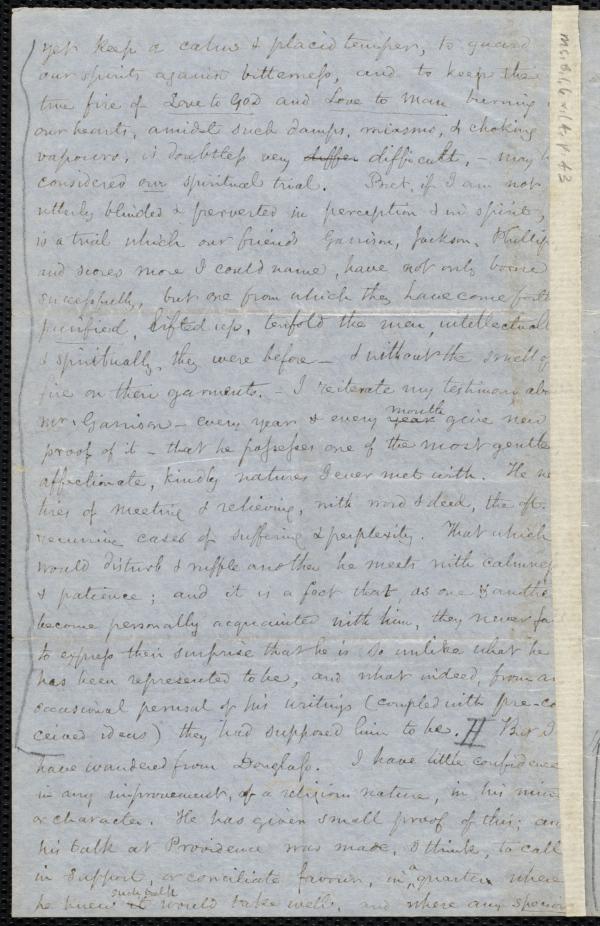 yet keep a calm & placid temper, to guard
our spirits against bitterness, and to keep the
true fire of Love to God and Love to Man burning
our hearts, amidst such damps, miasms, & choking
vapours, is doubtless very differ difficult, – may
considered our spiritual trial. But, if I am not
utterly blinded & perverted in perception & in spirit,
is a trial which our friends Garrison, Jackson, Phillips
and scores more I could name, have not only borne
successfully, but one from which they have come forth
purified, lifted up, tenfold the men, intellectual
& spiritually, they were before – & without the smell of
fire on their garments. – I reiterate my testimony
Mr. Garrison – every year & every year month give new
proof of it – that he possesses one of the most gentle
affectionate, kindly natures I ever met with. He
tires of meeting & relieving, with word & deed, the oft
recurring cases of suffering & perplexity. That which
would disturb & ruffle another he meets with calmness
& patience; and it is a fact that, as one & another
become personally acquainted with him, they never
to express their surprise that he is so unlike what he
has been represented to be, and what indeed, from an
occasional perusal of his writings (coupled with pre-
ceived ideas) they had supposed him to be. But I
have wandered from Douglass. I have little confidence
in any improvement, of a religious nature, in his mind
or character. He has given small proof of this; and
his talk at Providence was made, I think, to call
in support, or conciliate favour, in a quarter where
he knew it such talk would take well, and where any
Ms.A.1.6 v.1 #; p. 43